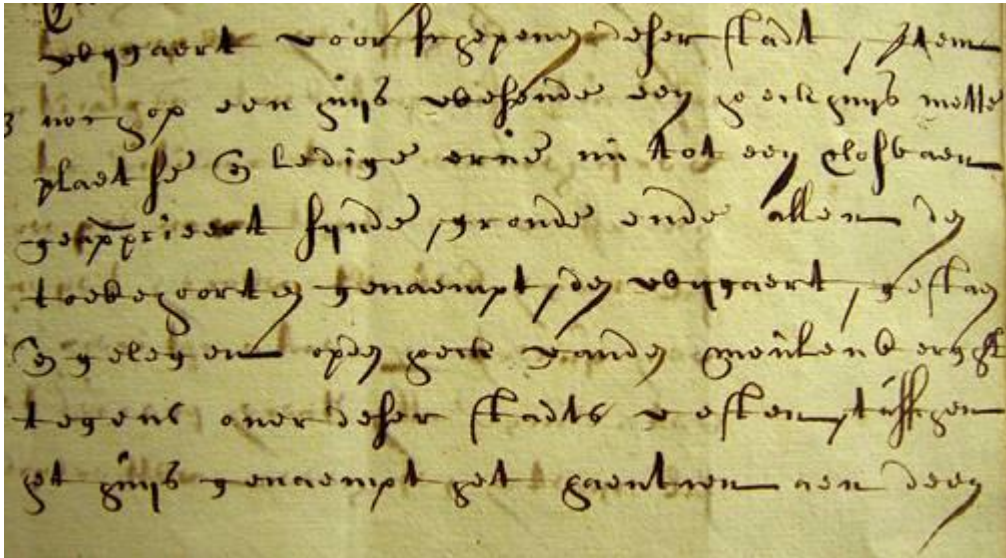 wijgaert voor schepenen deser stadt, Item
noch op een huijs wesende een hoeckhuijs mette
plaetse en ledige erve nu tot een closbaen
geapprieert sijnde, gronde ende allen den
toebehoorten genaempt, den wijgaert, gestaen
en gelegen opden hoeck vanden meulenberghst
tegens over deser stadts vesten, tusschen
het huijs genaempt het haentien aen deen